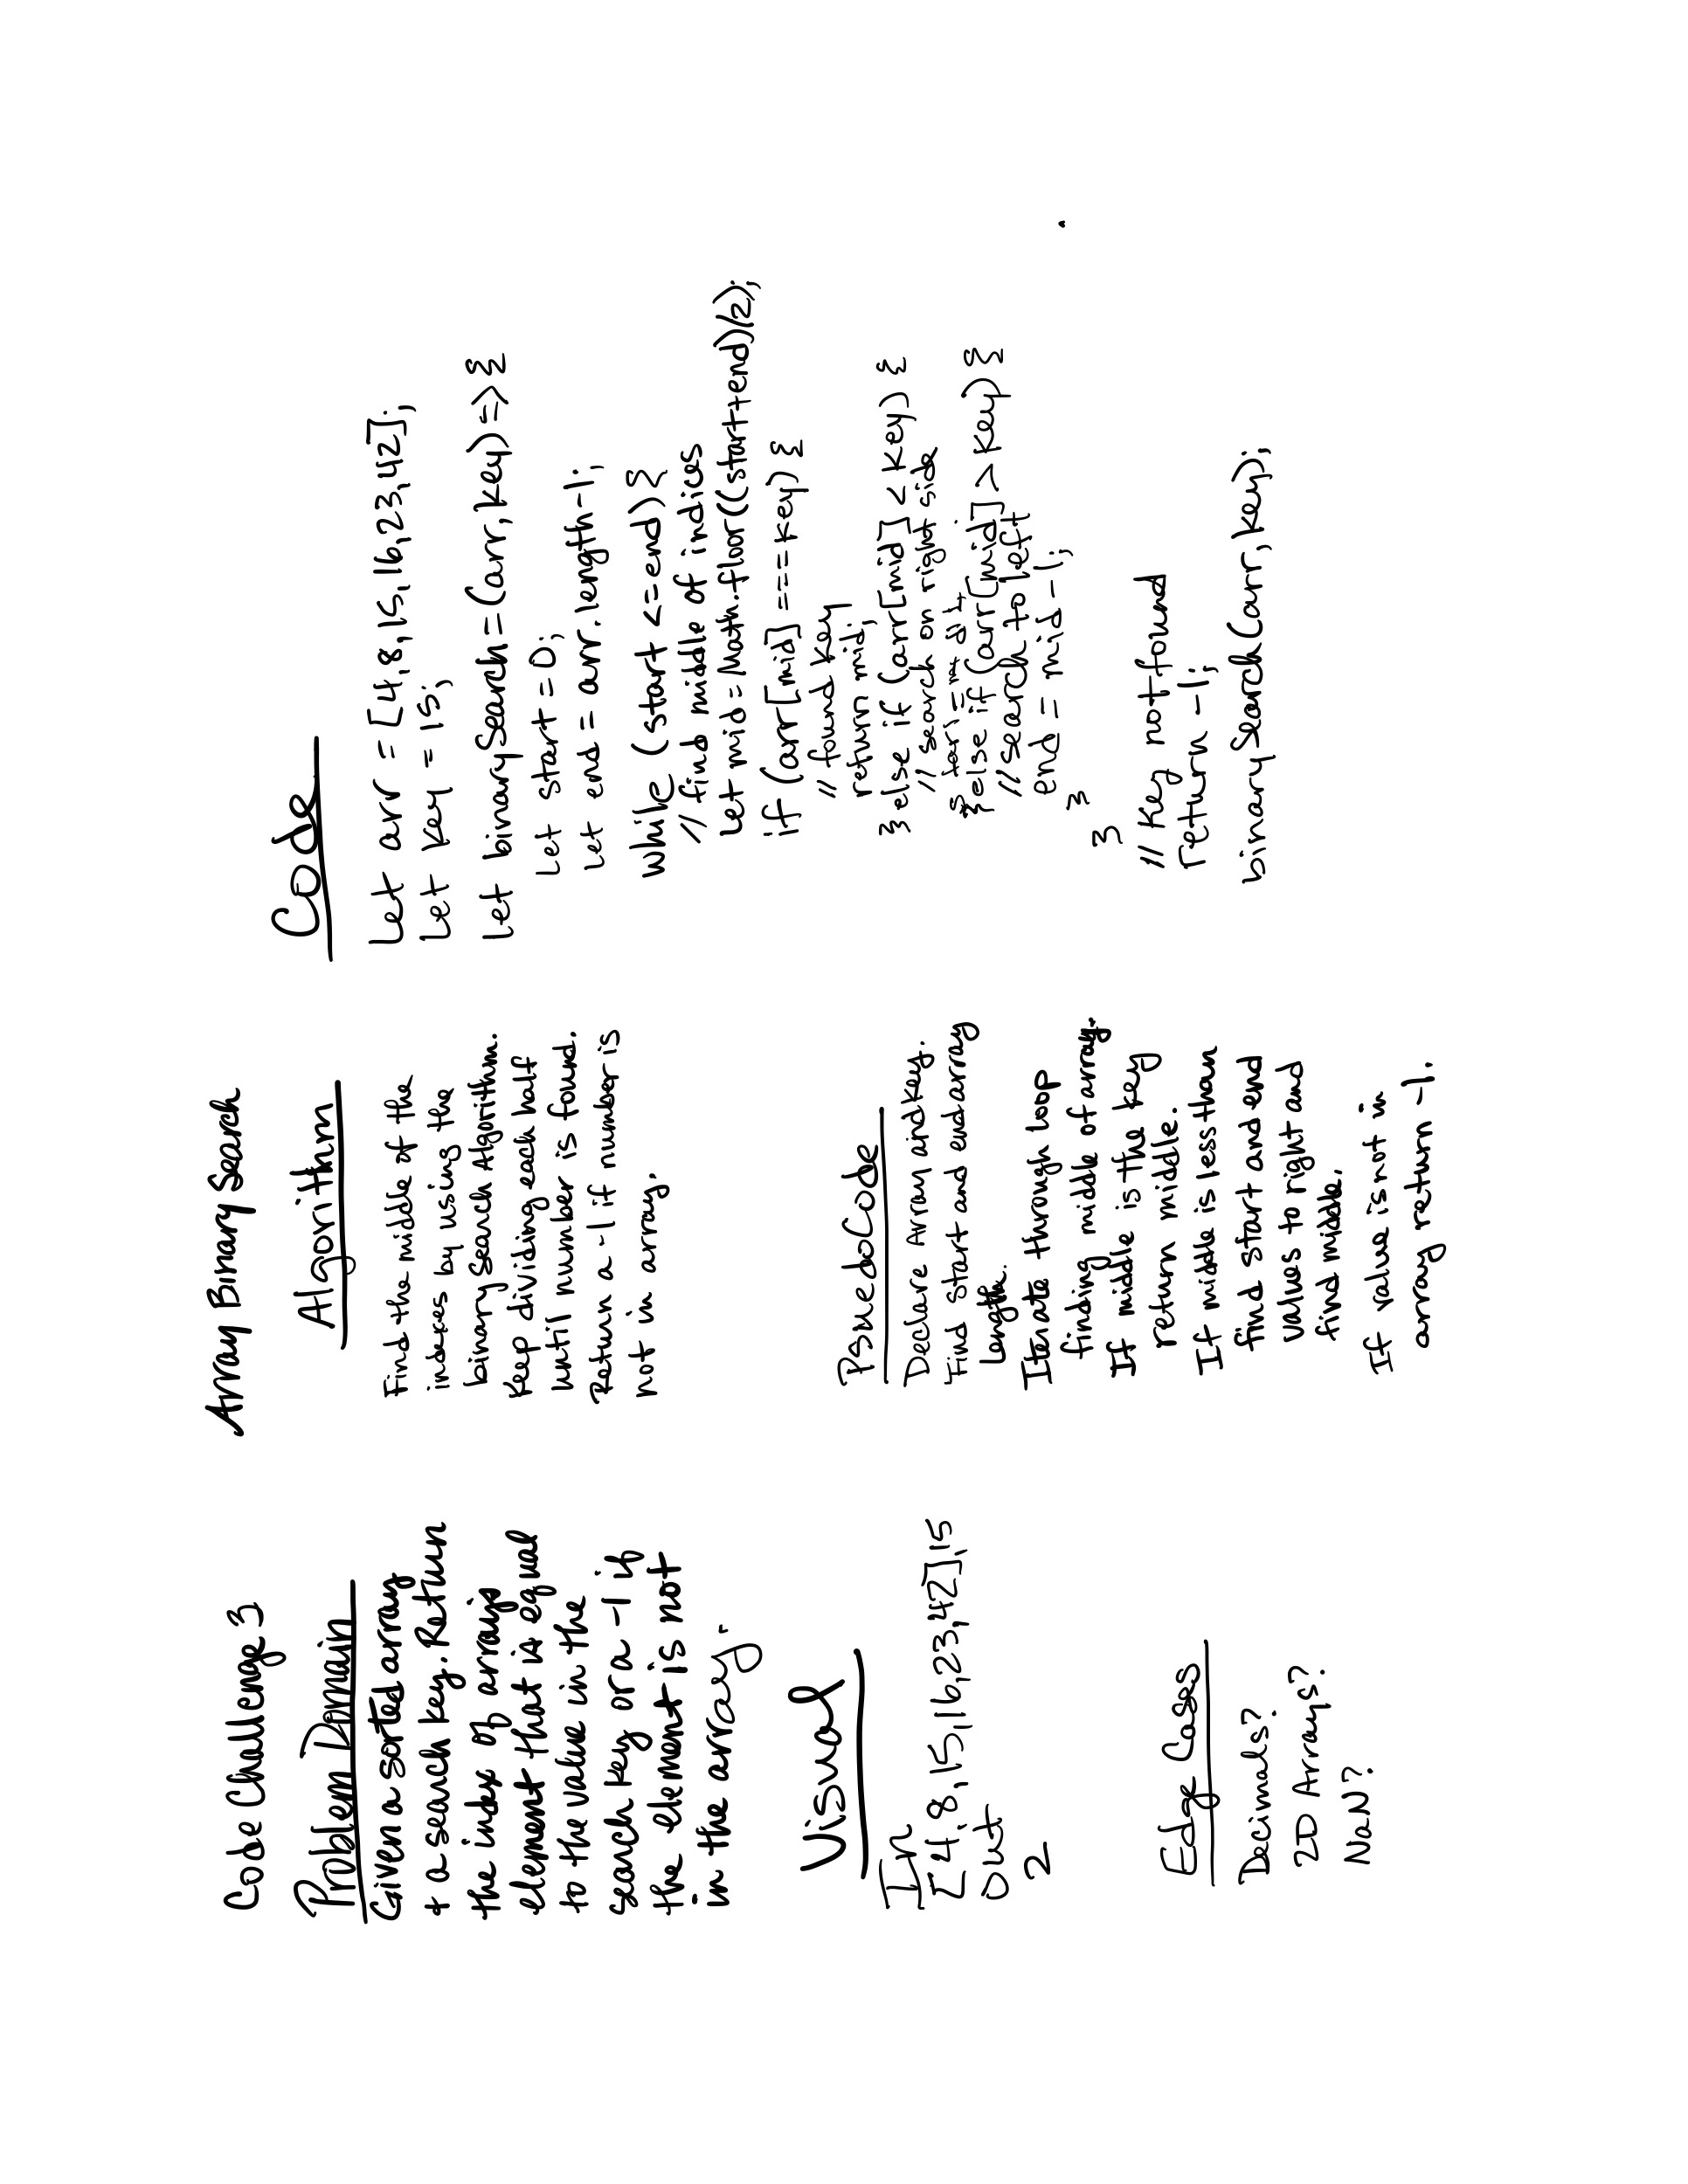 Code Challenge 3
Array Binary Search
Problem Domain
Given a sorted array
+ a search key. Return
the index of arrays
element that is equal
to the value in the
search key or a -1 if
the element is not
in the array.
Visual
In
[4,8,15,16,23,42],15
out
2
Edge Cases
Decimals?
2D Arrays?
NaN?
Algorithm
Find the middle of the
indices by using the
binary Search Algorithm.
Keep dividing each half
until number is found.
Return a -1 if number is
not in array.
PsuedoCode
Declare Array and key.
Find start and end array
length.
Iterate through loop
finding middle of array.
If middle is the key
return middle.
If middle is less than
find start and end
values to right and
find middle.
If value is not in
array return -1.
Code
Let arr = [4,8,15,16,23,42];
Let key = 15;
Let binarySearch = (arr, key) => {
Let start = 0;
Let end = arr.length-1;
while (start <= end) {
// find middle of indices
Let mid = Math.floor((start+end)/2);
if (arr[mid] === key) {
// found key
return mid;
} else if (arr[mid] < key) {
// search on right side
} else if (arr[mid] > key) {
// search to left
end = mid - 1;
}
}
// Key not found
return -1;
binarySearch(arr, key);